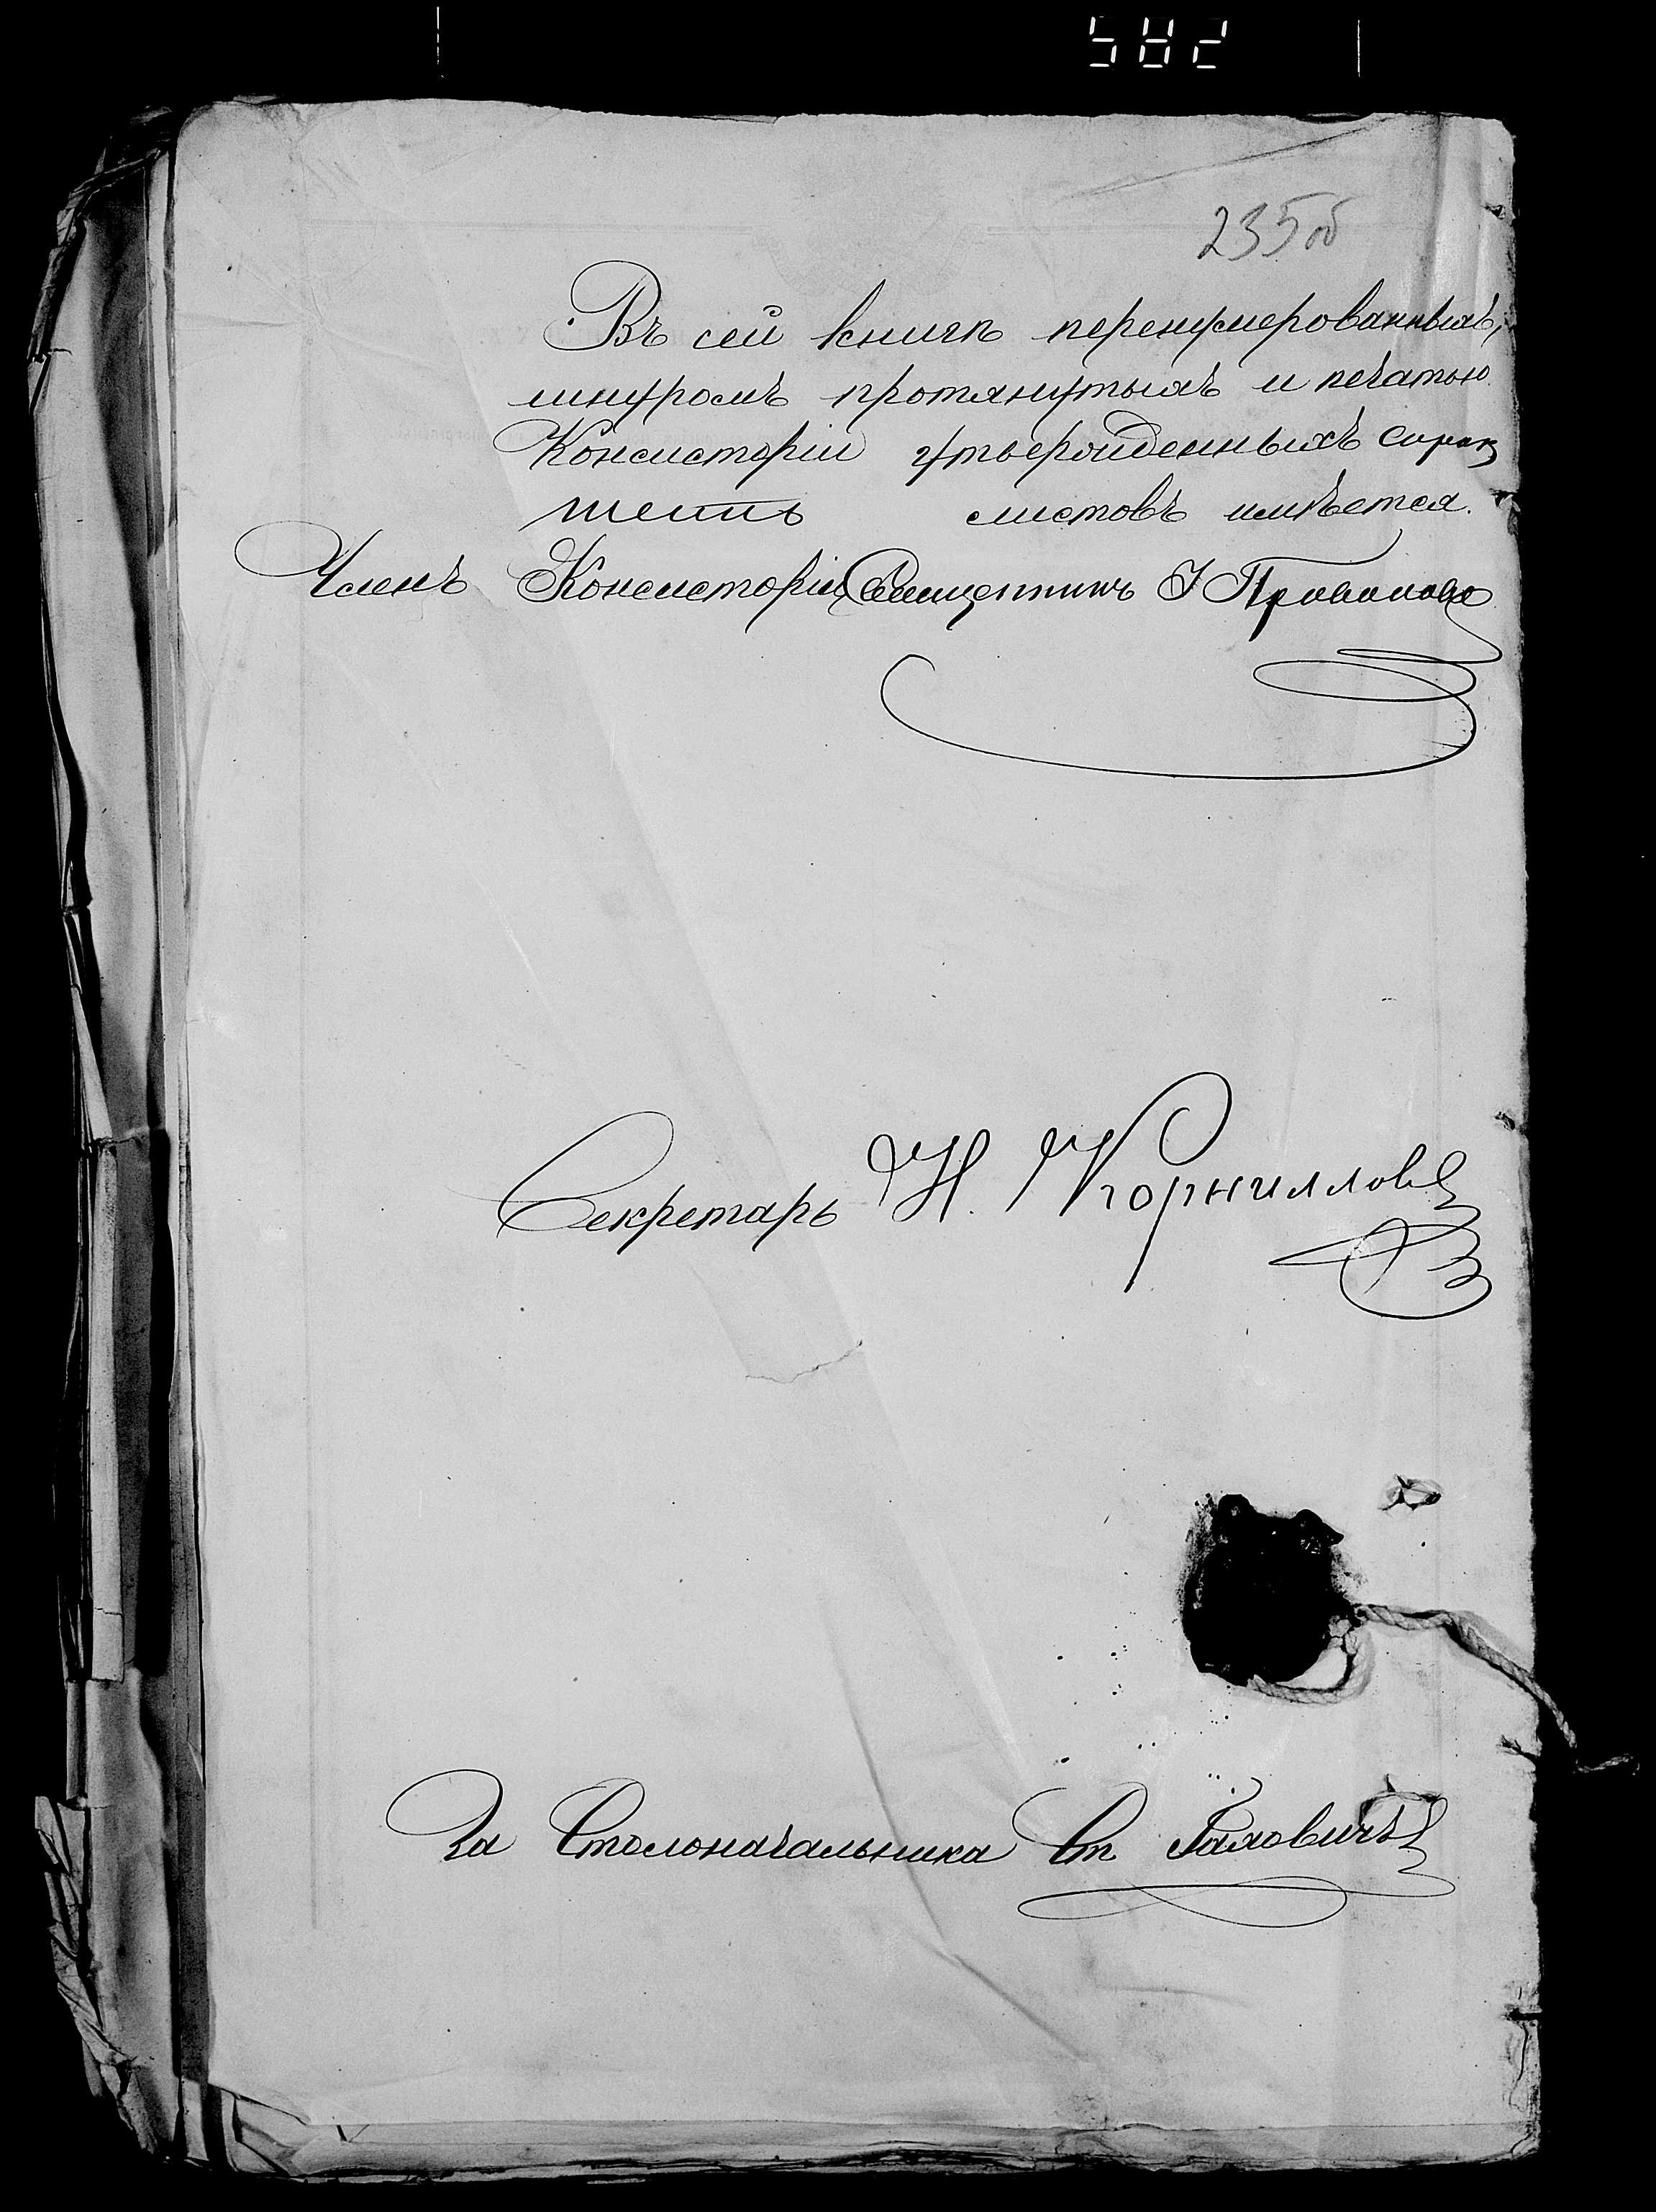 582
235 об
Въ сей книгѣ перенумерованныхъ,
шнуромъ протянутыхъ и печатью
Консисторіи утвержденныхъ сорок
шесть листовъ имѣется.
Членъ Консисторіи Священникъ І
Секретарь Н. Корниллов
За Столоначальника Ст.